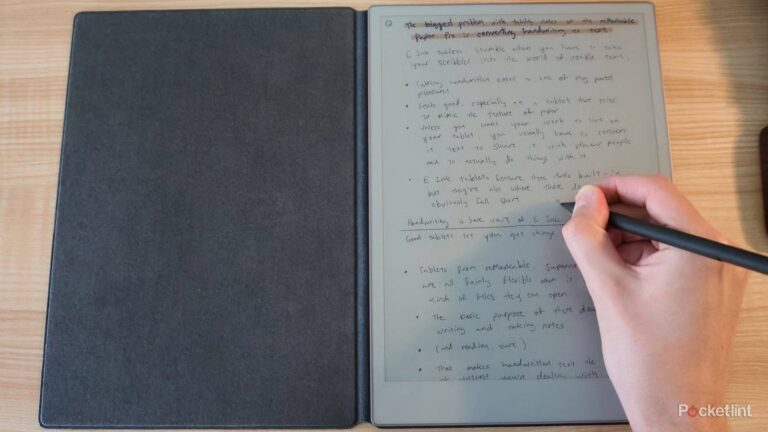 The biggest problem with taking notes on the reMarkable
Paper Pro is converting handwriting to text
E Ink tablets stumble when you have to take
your scribbles into the world of usable text.
• Taking handwritten notes is one of my purest
pleasures
• Feels good, especially on a tablet that tries
to mimic the texture of paper
• Unless you want your work to live on
your tablet, you usually have to convert
it text to share it with other people
and to actually do things with it
• E Ink tablets feature these tools built-in
but they're also where they
obviously fall short
Handwriting is one unit of E Ink
Good tablets let you get things
• Tablets from reMarkable,
are all fairly flexible when it
kinds of files they can open
• The basic purpose of these
writing and taking notes
• (and reading, sure)
• That makes handwritten text the
you're dealing with
Pocketlint